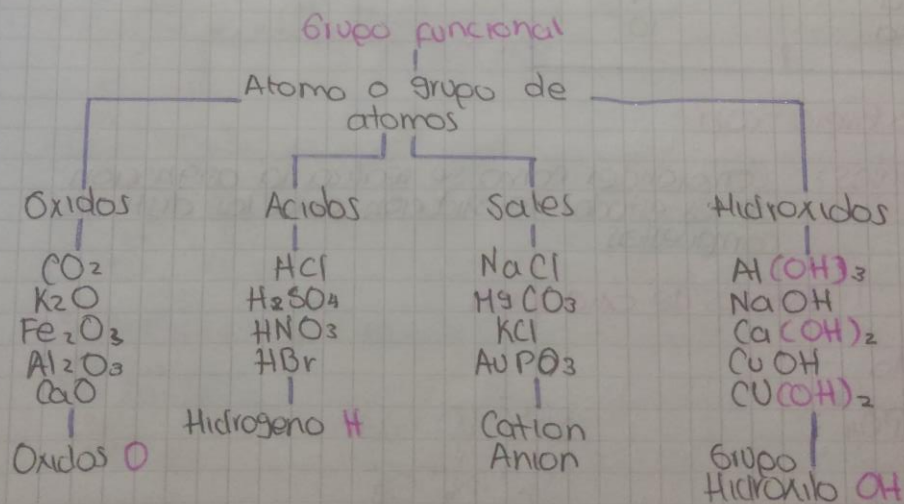 Grupo funcional
Atomo o grupo de
atomos
Oxidos
CO2
K2O
Fe2O3
Al2O3
CaO
Oxidos O
Acidos
HCl
H2SO4
HNO3
HBr
Hidrogeno H
Sales
NaCl
HgCO3
KCl
AUPO3
Cation
Anion
Hidroxidos
Al(OH)3
NaOH
Ca(OH)2
CuOH
CU(OH)2
Grupo
Hidroxilo OH